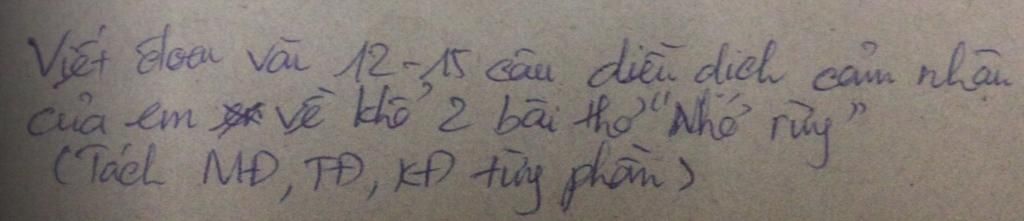 Viết đoạn văn 12-15 câu diễn dịch cảm nhận
của em về khổ 2 bài thơ "Nhớ rừng"
(Tách MĐ, TĐ, KĐ từng phần)